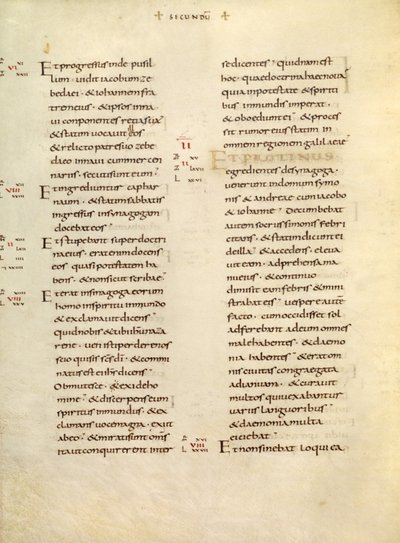 SECUNDU
Et progressus inde pusil
lum · vidit iacobum ze
bedaei · & iohannem fra
trem eius · & ipsos in na
vi componentes retia sua
& statim vocavit eos
& relicto patre suo zebe
daeo in navi cum mercen
nariis · secuti sunt eum
Et ingrediuntur caphar
naum · & statim sabbatis
ingressus in synagogam
docebat eos
Et stupebant super doctri
na eius · erat enim docens
eos quasi potestatem ha
bens · & non sicut scribae
Et erat in synagoga eorum
homo in spiritu inmundo
& exclamavit dicens
quid nobis & tibi
rene · venisti perdere nos
scio qui sis · & commi
natus est ei dicens
Obmutesce · & exi de ho
mine · & discerpens eum
spiritus inmundus · & ex
clamans voce magna · exiit
ab eo · & mirati sunt
ita ut conquirerent inter
se dicentes · quidnam est
hoc · quae doctrina haec nova
quia in potestate & spiriti
bus inmundis imperat ·
& oboediunt ei · & proces
sit rumor eius statim in
omnem regionem galilaeae
ET PROTINUS
egredientes de synagoga ·
venerunt in domum symo
nis & andreae cum iacobo
& iohanne · Decumbebat
autem socrus simonis febri
citans · & statim dicunt ei
de illa · & accedens · eleva
vit eam · adprehensa ma
nu eius · & continuo
dimisit eam febris & mini
strabat eis · vespere autem
facto · cum occidisset sol
adferebant ad eum omnes
male habentes · & daemo
nia habentes · & erat om
nis civitas congregata
ad ianuam · & curavit
multos qui vexabantur
variis languoribus
& daemonia multa
eiciebat
Et non sinebat loqui ea